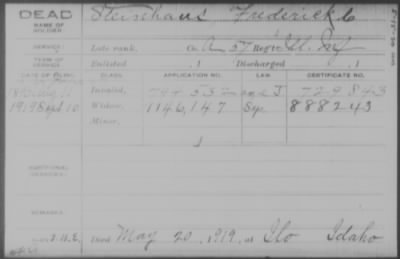 DEAD
NAME OF SOLDIER:
Steinhaus, Frederick C
SERVICE:
Late rank, Co. A 57 Reg't Ill. Inf
TERM OF SERVICE:
Enlisted , 1 Discharged , 1
DATE OF FILING. CLASS. APPLICATION NO. LAW. CERTIFICATE NO.
Invalid, 744,532 J 729843
1919 Sept 10 Widow, 1146,147 888243
Minor,
ADDITIONAL SERVICES:
REMARKS:
Died May 20, 1919, at Ilo Idaho